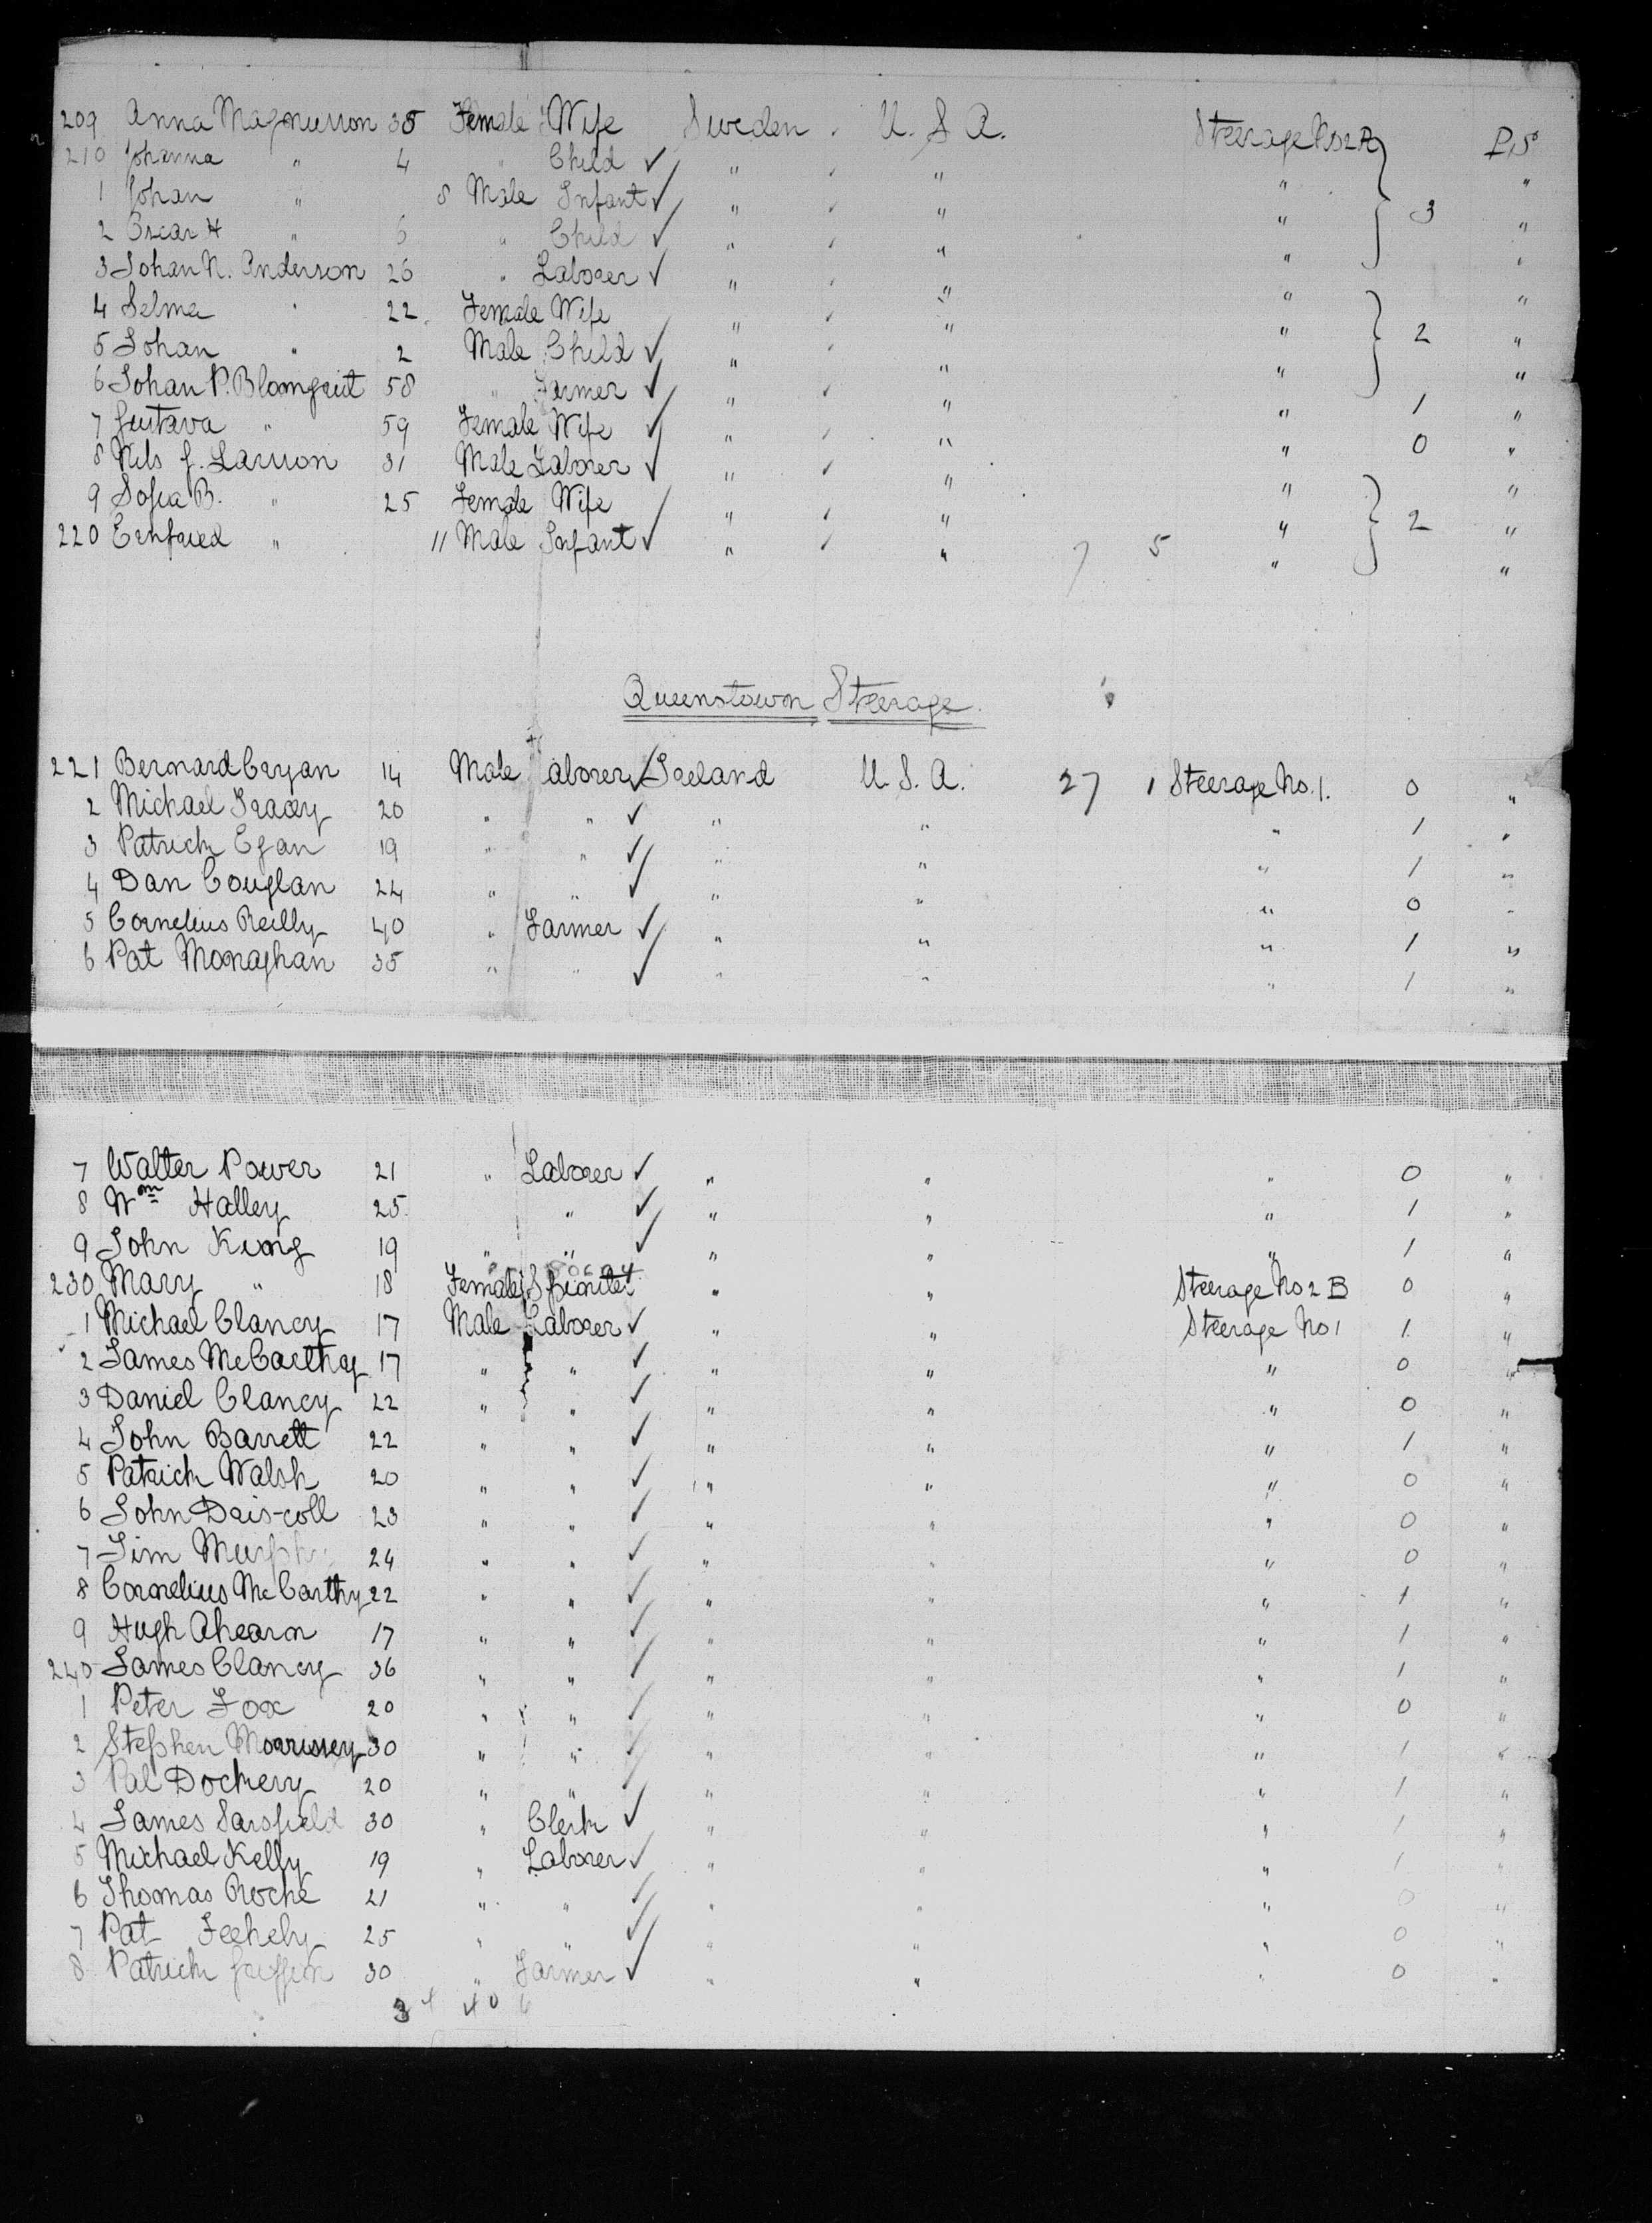 209 Anna Magnusson 35 Female Wife Sweden U. S. A. Steerage No 2 A P.S
210 Johanna " 4 " Child ✓ " " "  "
1 Johan " 8 Male Infant ✓ " " " 3 "
2 Oscar H " 6 " Child ✓ " " " "
3 Johan N. Anderson 26 " Laborer ✓ " " " "
4 Selma " 22 Female Wife " " " 2 "
5 Johan " 2 Male Child ✓ " " " "
6 Johan P. 58 " Farmer ✓ " " " 1 "
7 Gustava " 59 Female Wife ✓ " " " 0 "
8 Nils J. Larsson 31 Male Laborer ✓ " " " "
9 Sofia B. " 25 Female Wife " " " 2 "
220 " 11 Male Infant ✓ " " 7 5 " "
Queenstown Steerage.
221 Bernard Cryan 14 Male Laborer ✓ Ireland U. S. A. 27 1 Steerage No. 1. 0 "
2 Michael Tracey 20 " " ✓ " " " 1 "
3 Patrick Egan 19 " " ✓ " " " 1 "
4 Dan Couglan 24 " " ✓ " " " 0 "
5 Cornelius Reilly 40 " Farmer ✓ " " " 1 "
6 Pat Monaghan 35 " " ✓ " " " 1 "
7 Walter Power 21 " Laborer ✓ " " " 0 "
8 Wm Halley 25 " ✓ " " " 1 "
9 John King 19 " " ✓ " " " 1 "
230 Mary " 18 Female Spinster " " Steerage No 2 B 0 "
1 Michael Clancy 17 Male Laborer ✓ " " Steerage No 1 1 "
2 James McCarthy 17 " " ✓ " " " 0 "
3 Daniel Clancy 22 " " ✓ " " " 0 "
4 John Barrett 22 " " ✓ " " " 1 "
5 Patrick Walsh 20 " " ✓ " " " 0 "
6 John Dris-coll 23 " " ✓ " " " 0 "
7 Tim Murphy 24 " " ✓ " " " 0 "
8 Cornelius McCarthy 22 " " ✓ " " " 1 "
9 Hugh Ahearn 17 " " ✓ " " " 1 "
240 James Clancy 36 " " ✓ " " " 1 "
1 Peter Fox 20 " " ✓ " " " 0 "
2 Stephen Morrissey 30 " " ✓ " " " 1 "
3 Pat Dockery 20 " " ✓ " " " 1 "
4 James Sarsfield 30 " Clerk ✓ " " " 1 "
5 Michael Kelly 19 " Laborer ✓ " " " 1 "
6 Thomas Roche 21 " " ✓ " " " 0 "
7 Pat Feehely 25 " " ✓ " " " 0 "
8 Patrick Griffin 30 " Farmer ✓ " " " 0 "